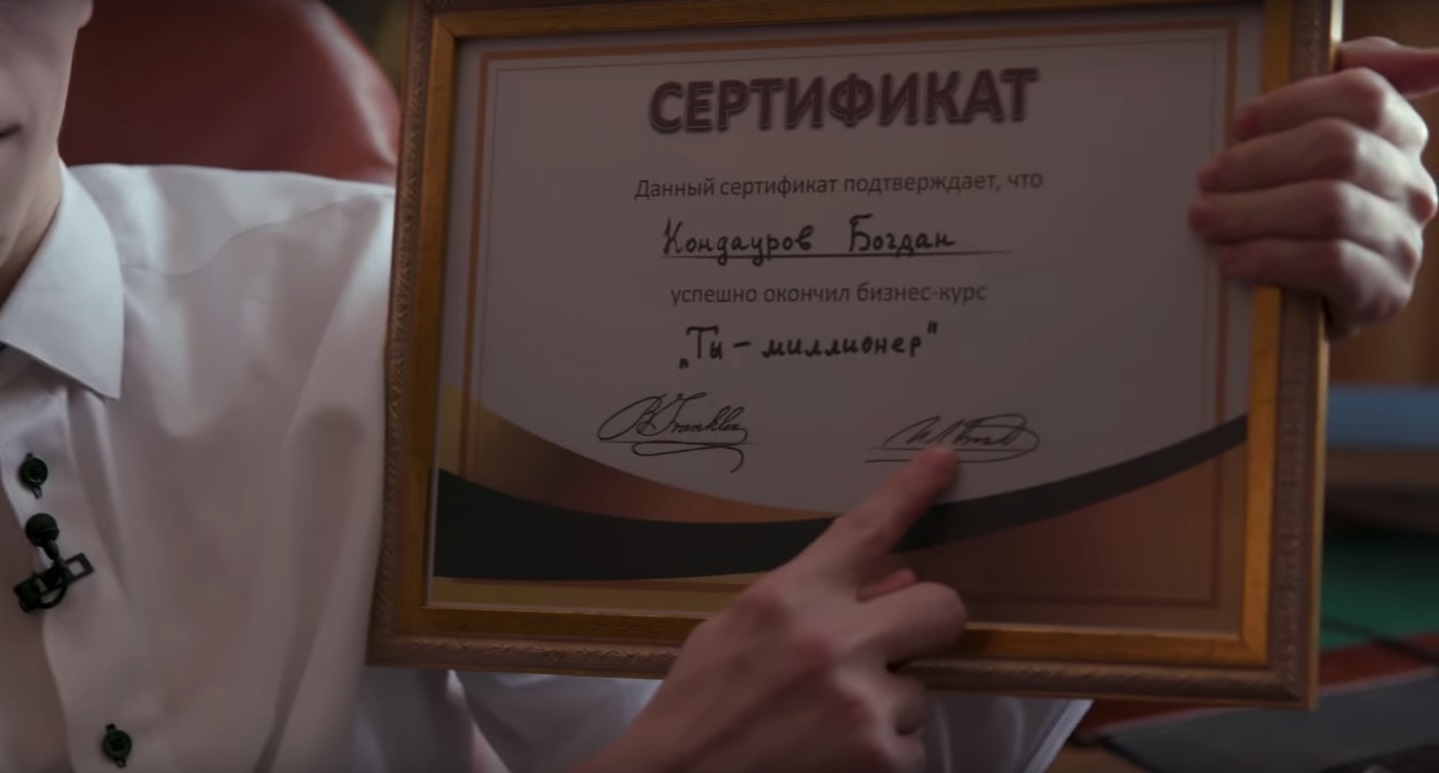 СЕРТИФИКАТ
Данный сертификат подтверждает, что
Кондауров Богдан
успешно окончил бизнес-курс
„Ты - миллионер"